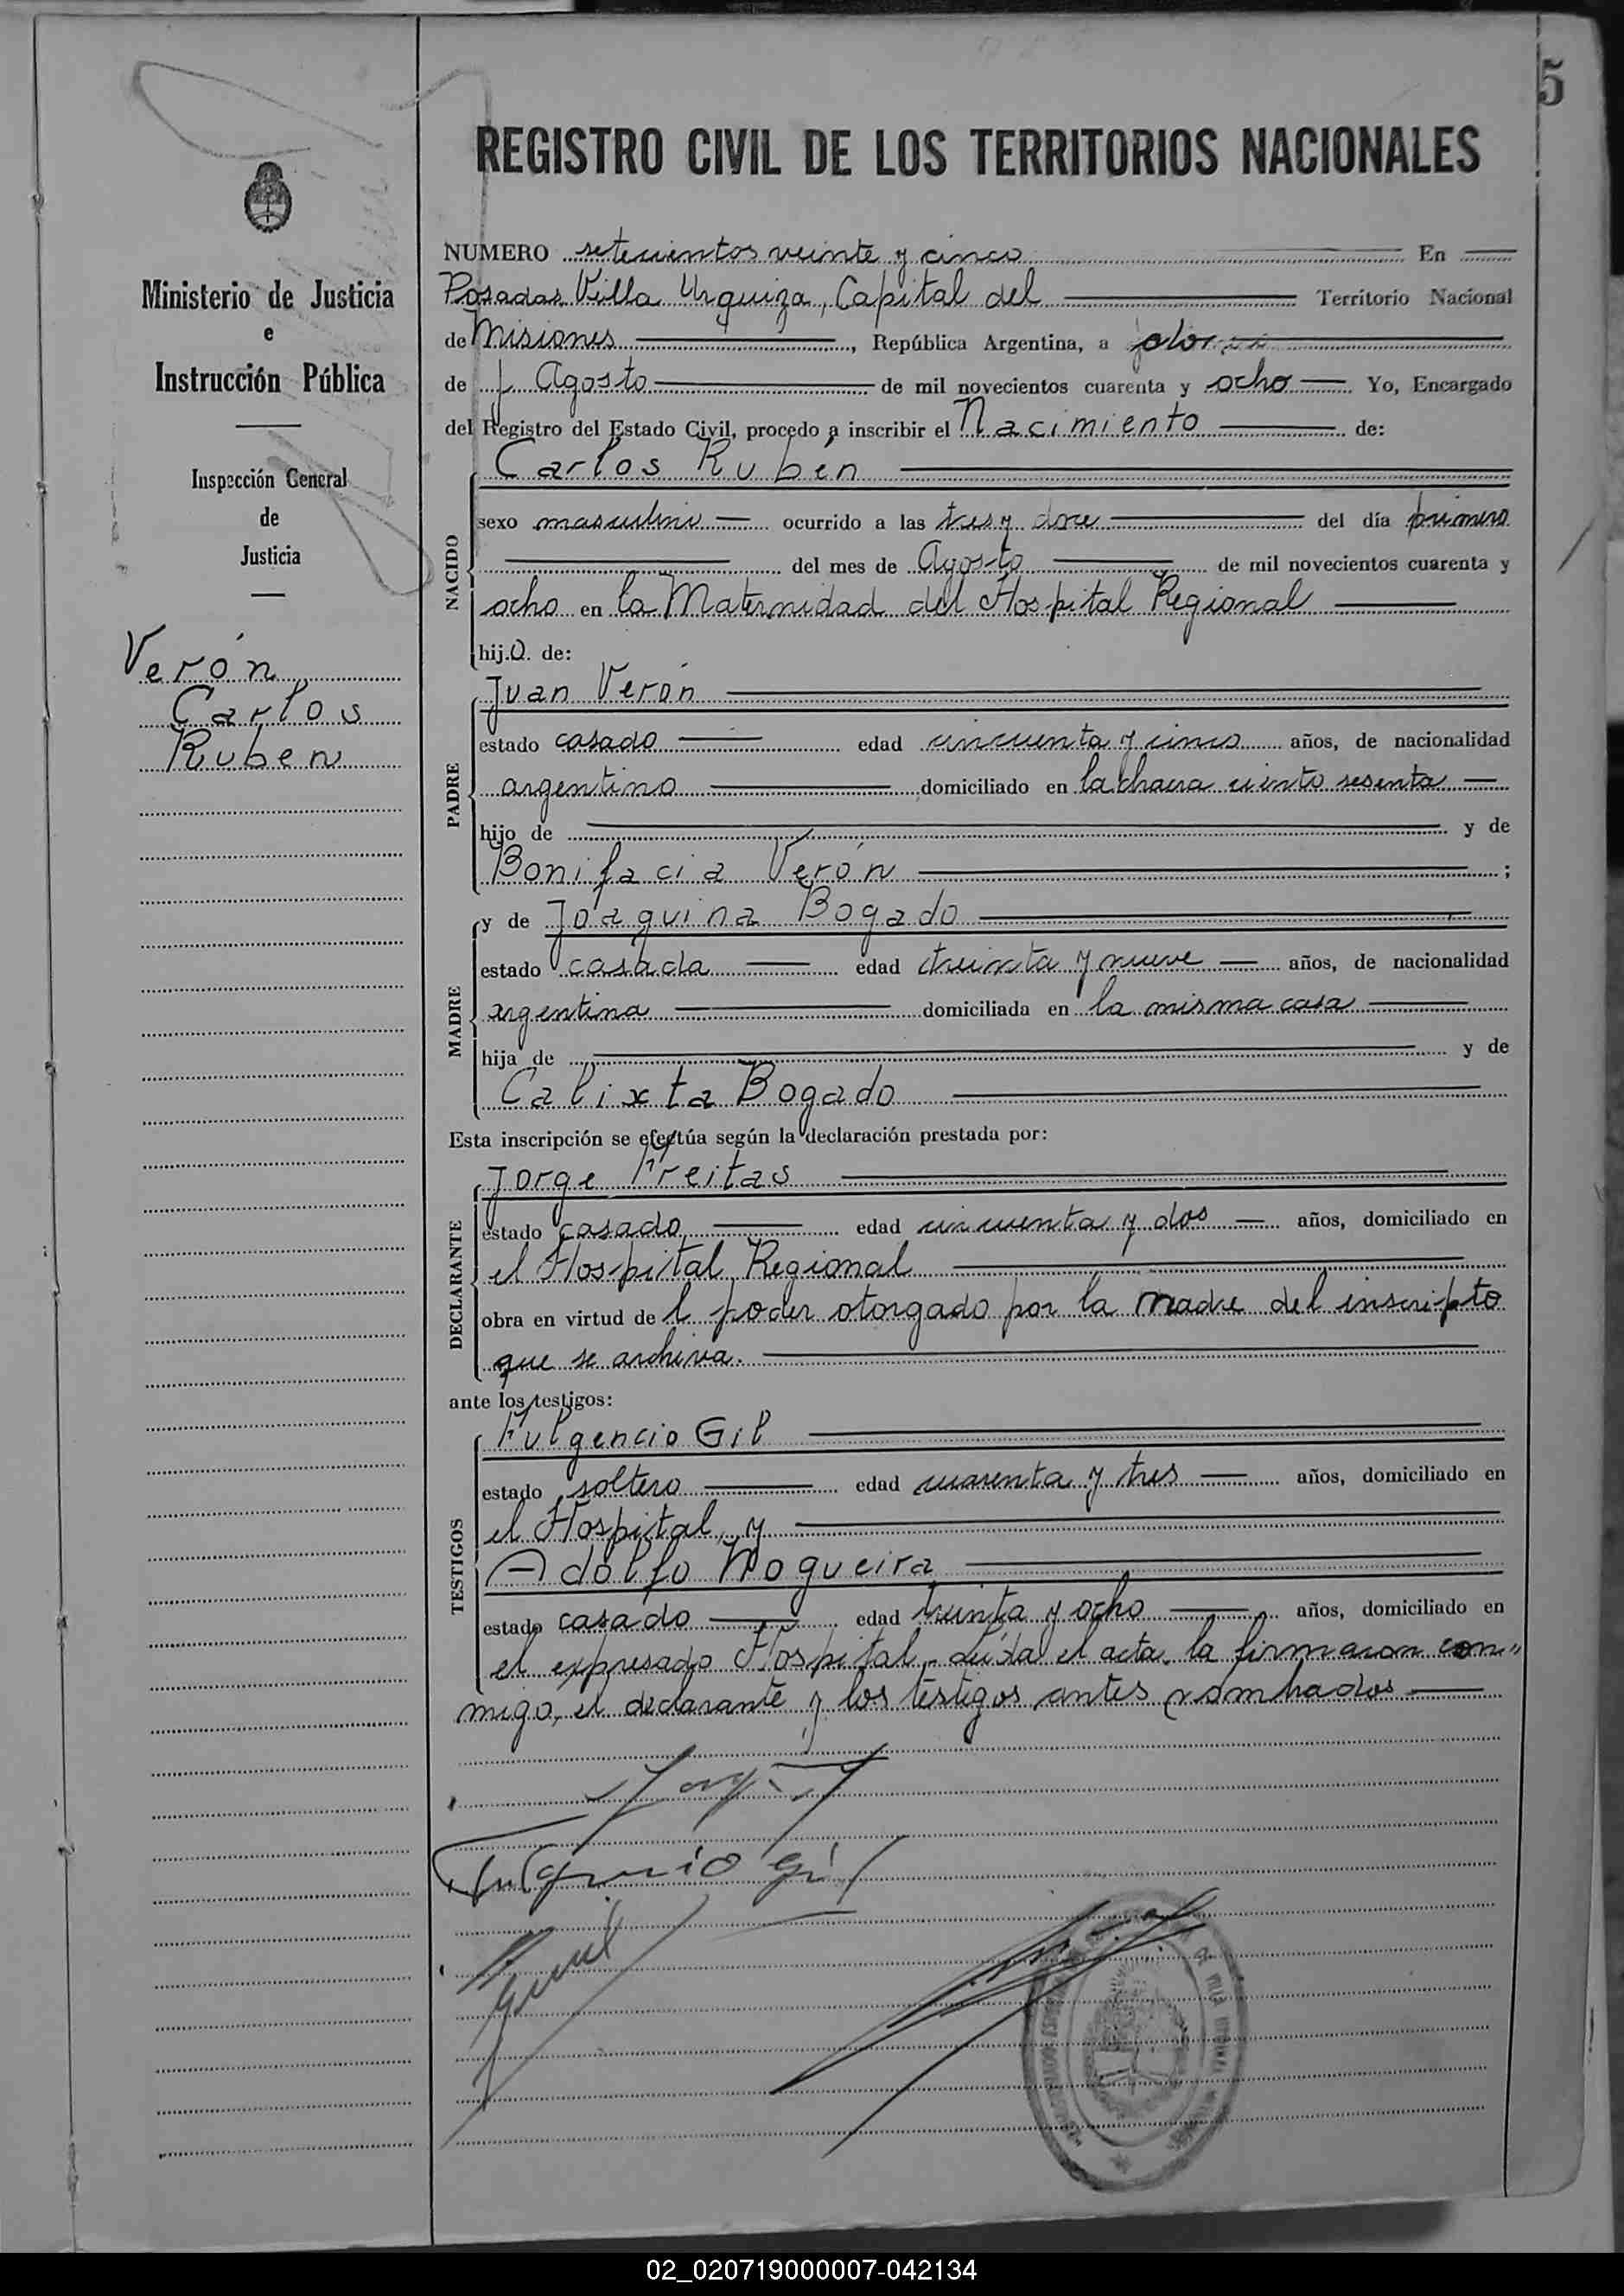 5
REGISTRO CIVIL DE LOS TERRITORIOS NACIONALES
Ministerio de Justicia
e
Instrucción Pública
Inspección General
de
Justicia
Verón
Carlos
Ruben
NUMERO setecientos veinte y cinco En
Posadas Villa Urquiza, Capital del Territorio Nacional
de Misiones, República Argentina, a
de Agosto de mil novecientos cuarenta y ocho Yo, Encargado
del Registro del Estado Civil, procedo a inscribir el Nacimiento de:
Carlos Rubén
NACIDO
sexo masculino ocurrido a las tres y doce del día primero
del mes de Agosto de mil novecientos cuarenta y
ocho en la Maternidad del Hospital Regional
hijo. de:
PADRE
Juan Verón
estado casado edad cincuenta y cinco años, de nacionalidad
argentino domiciliado en la chacra ciento sesenta
hijo de y de
Bonifacia Verón ;
MADRE
y de Joaquina Bogado
estado casada edad treinta y nueve años, de nacionalidad
argentina domiciliada en la misma casa
hija de y de
Calixta Bogado
Esta inscripción se efectúa según la declaración prestada por:
DECLARANTE
Jorge Freitas
estado casado edad cincuenta y dos años, domiciliado en
el Hospital Regional
obra en virtud del poder otorgado por la madre del inscripto
que se archiva.
ante los testigos:
TESTIGOS
Fulgencio Gil
estado soltero edad cuarenta y tres años, domiciliado en
el Hospital, y
Adolfo Nogueira
estado casado edad treinta y ocho años, domiciliado en
el expresado Hospital.- Leída el acta, la firmaron con"
migo, el declarante y los testigos antes nombrados
Fulgencio Gil
02_020719000007-042134